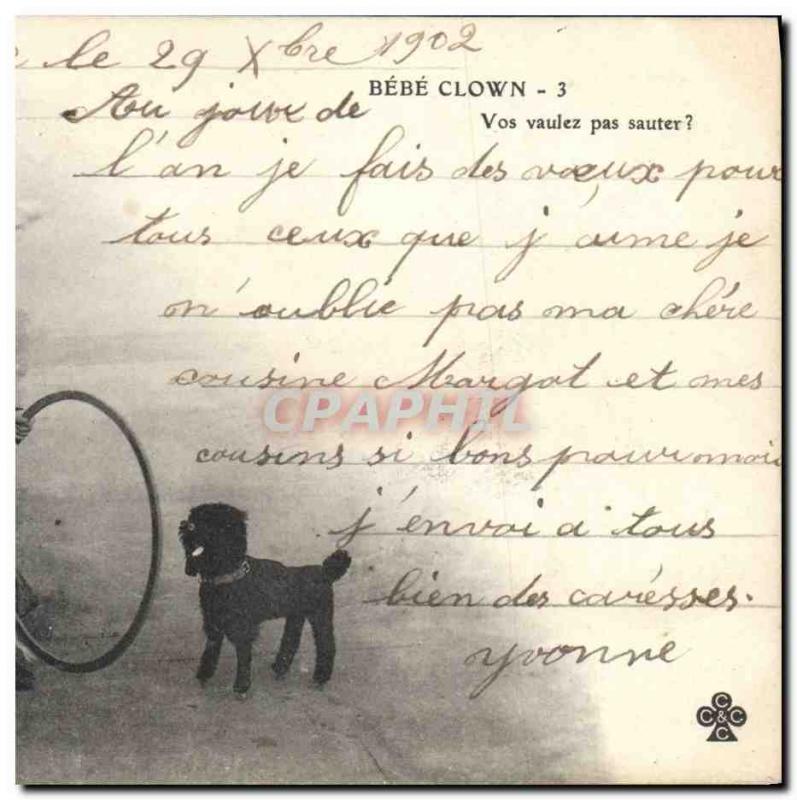 le 29 Xbre 1902
BÉBÉ CLOWN - 3
Vos vaulez pas sauter?
Au jour de
l'an je fais des vœux pour
tous ceux que j'aime je
n'oublie pas ma chére
cousine Margot et mes
CPAPHIL
cousins si bons pour moi
j'envoi a tous
bien des caresses.
yvonne
C
C & C
C